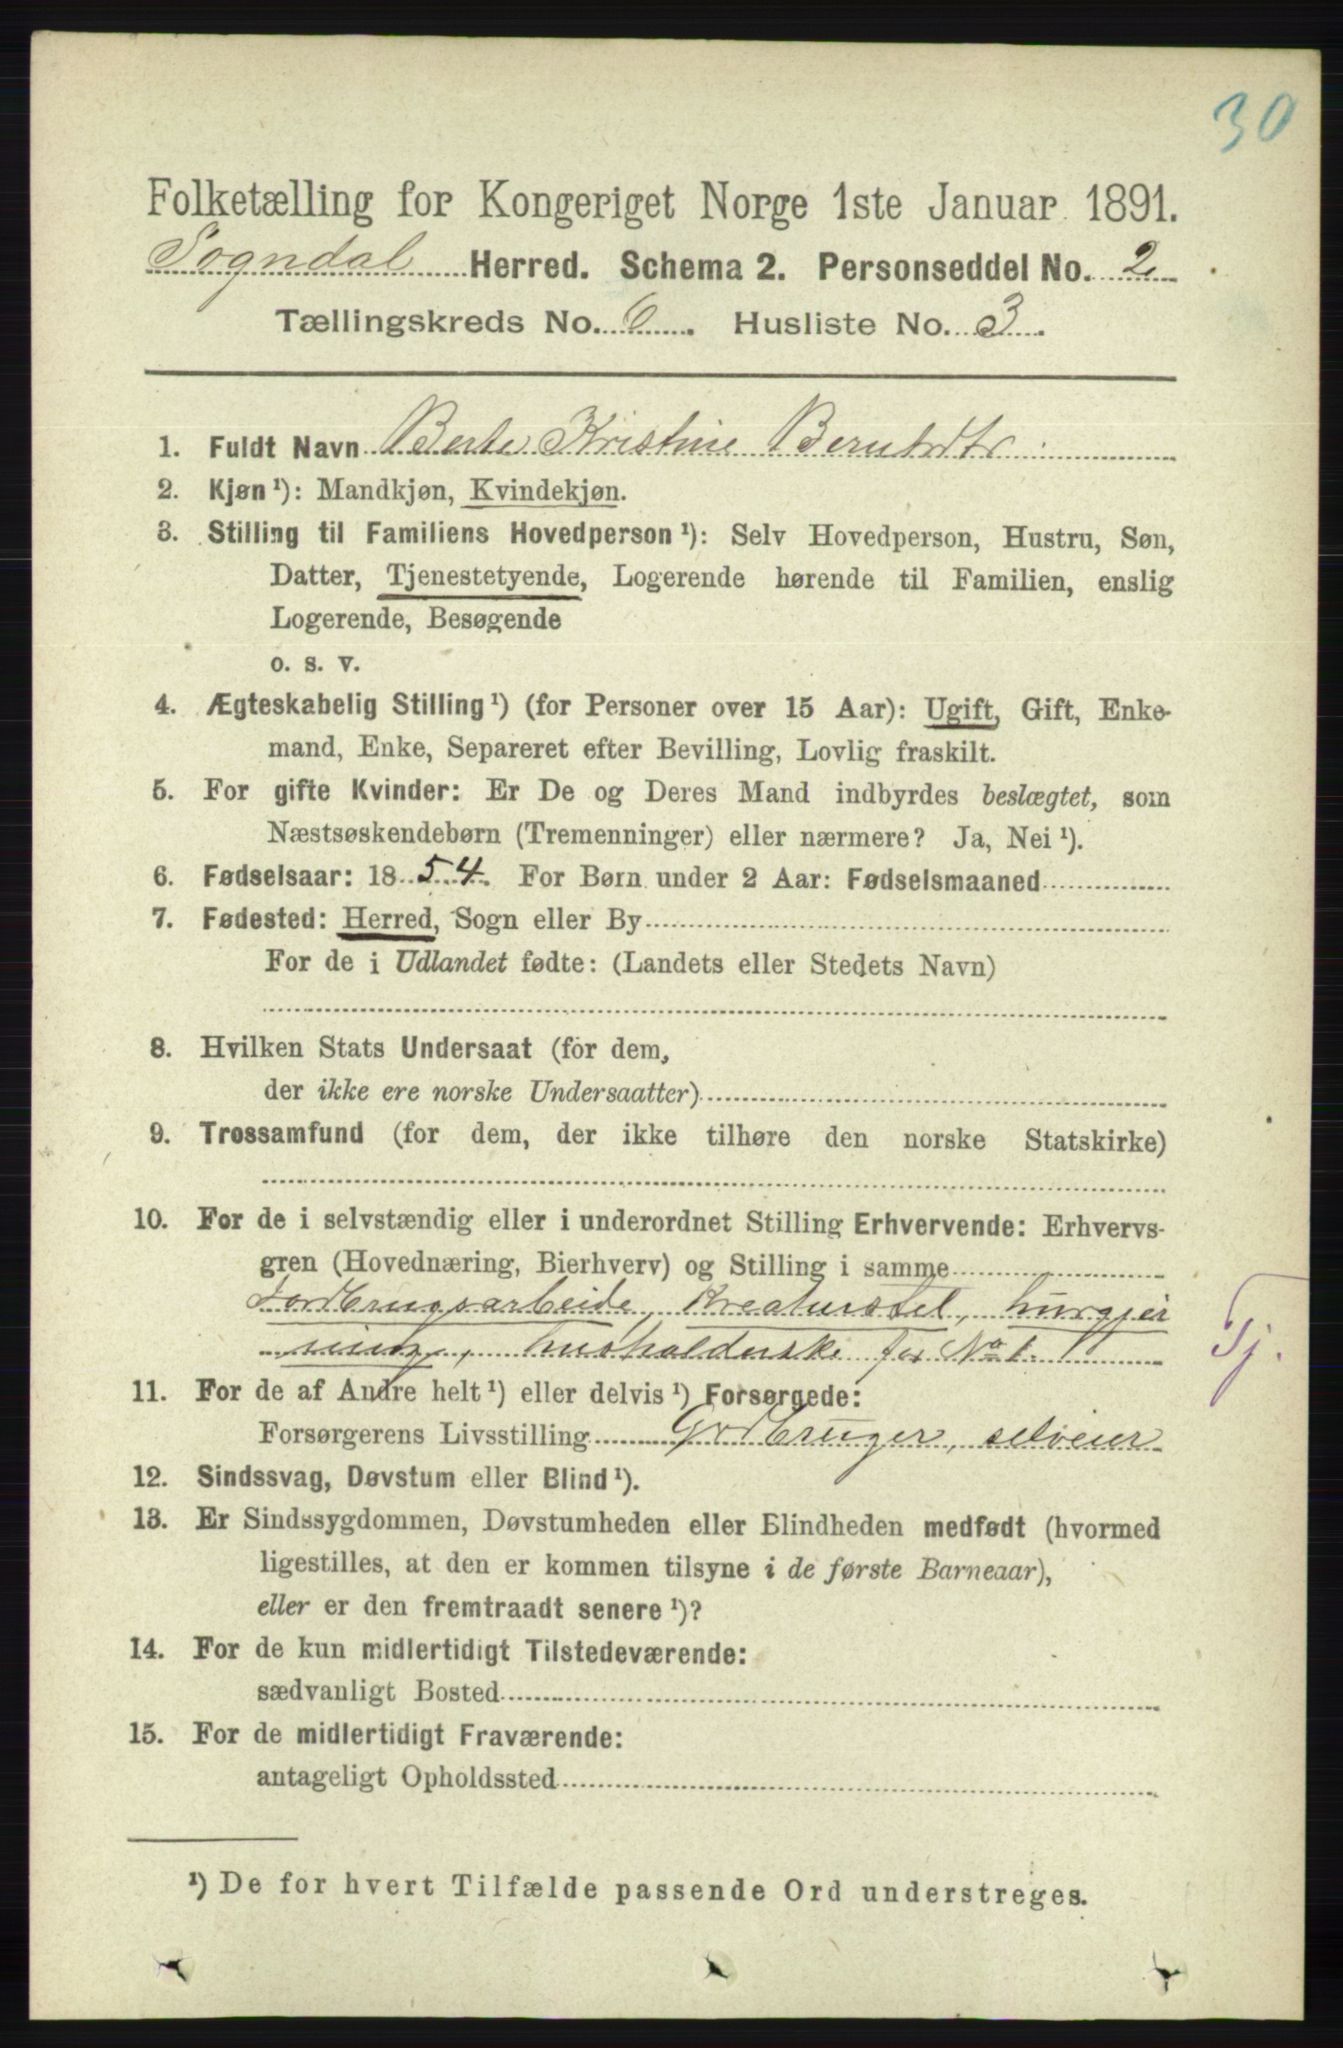 30
Folketælling for Kongeriget Norge 1ste Januar 1891.
Sogndal Herred. Schema 2. Personseddel No. 2
Tællingskreds No. 6. Husliste No. 3.
1. Fuldt Navn Berte Kristine Berntsdtr
2. Kjøn ¹): Mandkjøn, Kvindekjøn.
3. Stilling til Familiens Hovedperson ¹): Selv Hovedperson, Hustru, Søn,
Datter, Tjenestetyende, Logerende hørende til Familien, enslig
Logerende, Besøgende
o. s. v.
4. Ægteskabelig Stilling ¹) (for Personer over 15 Aar): Ugift, Gift, Enke-
mand, Enke, Separeret efter Bevilling, Lovlig fraskilt.
5. For gifte Kvinder: Er De og Deres Mand indbyrdes beslægtet, som
Næstsøskendebørn (Tremenninger) eller nærmere? Ja, Nei ¹).
6. Fødselsaar: 1854. For Børn under 2 Aar: Fødselsmaaned
7. Fødested: Herred, Sogn eller By
For de i Udlandet fødte: (Landets eller Stedets Navn)
8. Hvilken Stats Undersaat (for dem,
der ikke ere norske Undersaatter)
9. Trossamfund (for dem, der ikke tilhøre den norske Statskirke)
10. For de i selvstændig eller i underordnet Stilling Erhvervende: Erhvervs-
gren (Hovednæring, Bierhverv) og Stilling i samme
Jordbrugsarbeide, Kreaturstel, husgjer
ning, husholderske for No 1.
Tj.
11. For de af Andre helt ¹) eller delvis ¹) Forsørgede:
Forsørgerens Livsstilling Gårdbruger, selveier
12. Sindssvag, Døvstum eller Blind ¹).
13. Er Sindssygdommen, Døvstumheden eller Blindheden medfødt (hvormed
ligestilles, at den er kommen tilsyne i de første Barneaar),
eller er den fremtraadt senere ¹)?
14. For de kun midlertidigt Tilstedeværende:
sædvanligt Bosted
15. For de midlertidigt Fraværende:
antageligt Opholdssted
¹) De for hvert Tilfælde passende Ord understreges.